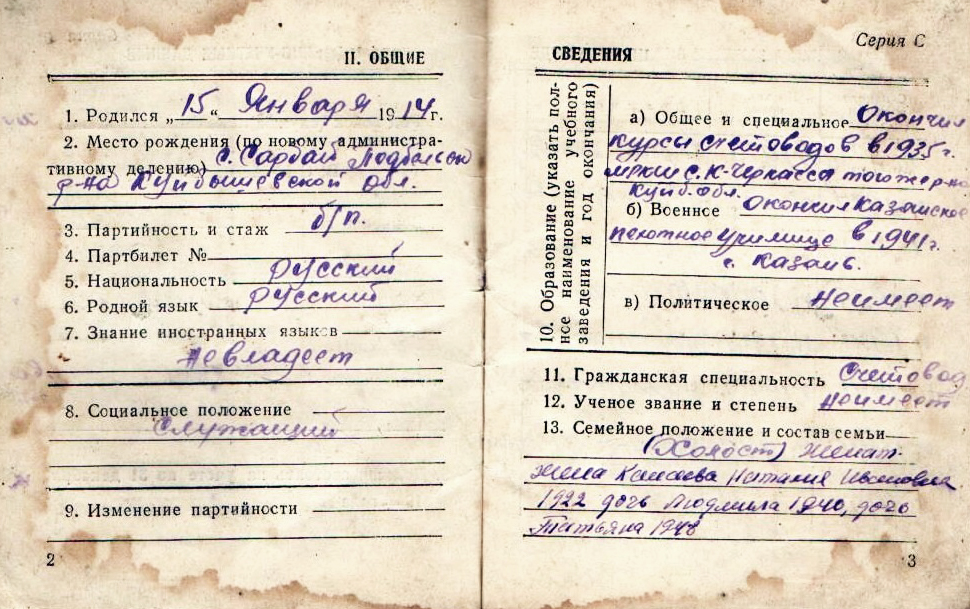 II. ОБЩИЕ
1. Родился „15“ Января 1914г.
2. Место рождения (по новому административному делению) с. Сарбай Подбельск
р-на Куйбышевской обл.
3. Партийность и стаж б/п.
4. Партбилет №
5. Национальность русский
6. Родной язык русский
7. Знание иностранных языков
не владеет
8. Социальное положение
Служащий
9. Изменение партийности
2
Серия С
СВЕДЕНИЯ
10. Образование (указать полное наименование учебного заведения и год окончания)
а) Общее и специальное Окончил
курсы счетоводов в 1935г.
с. К-Черкассы того же р-на
Куйб. обл.
б) Военное окончил Казанское
пехотное училище в 1941г.
г. Казань.
в) Политическое Не имеет
11. Гражданская специальность Счетовод
12. Ученое звание и степень Не имеет
13. Семейное положение и состав семьи
(Холост) женат.
жена Наталия Ивановна
1922 дочь Людмила 1940, дочь
Татьяна 1948
3